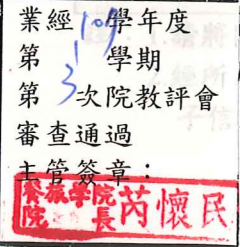 業經109學年度
第1學期
第3次院教評會
審查通過
主管簽章：
餐旅學院
院長芮懷民